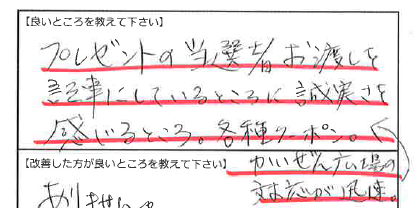 【良いところを教えて下さい】
プレゼントの当選者お渡しを
記事にしているところに誠実さを
感いるところ。各種クーポン。
【改善した方が良いところを教えて下さい】
かいぜん広場の
対応が迅速。
ありません。